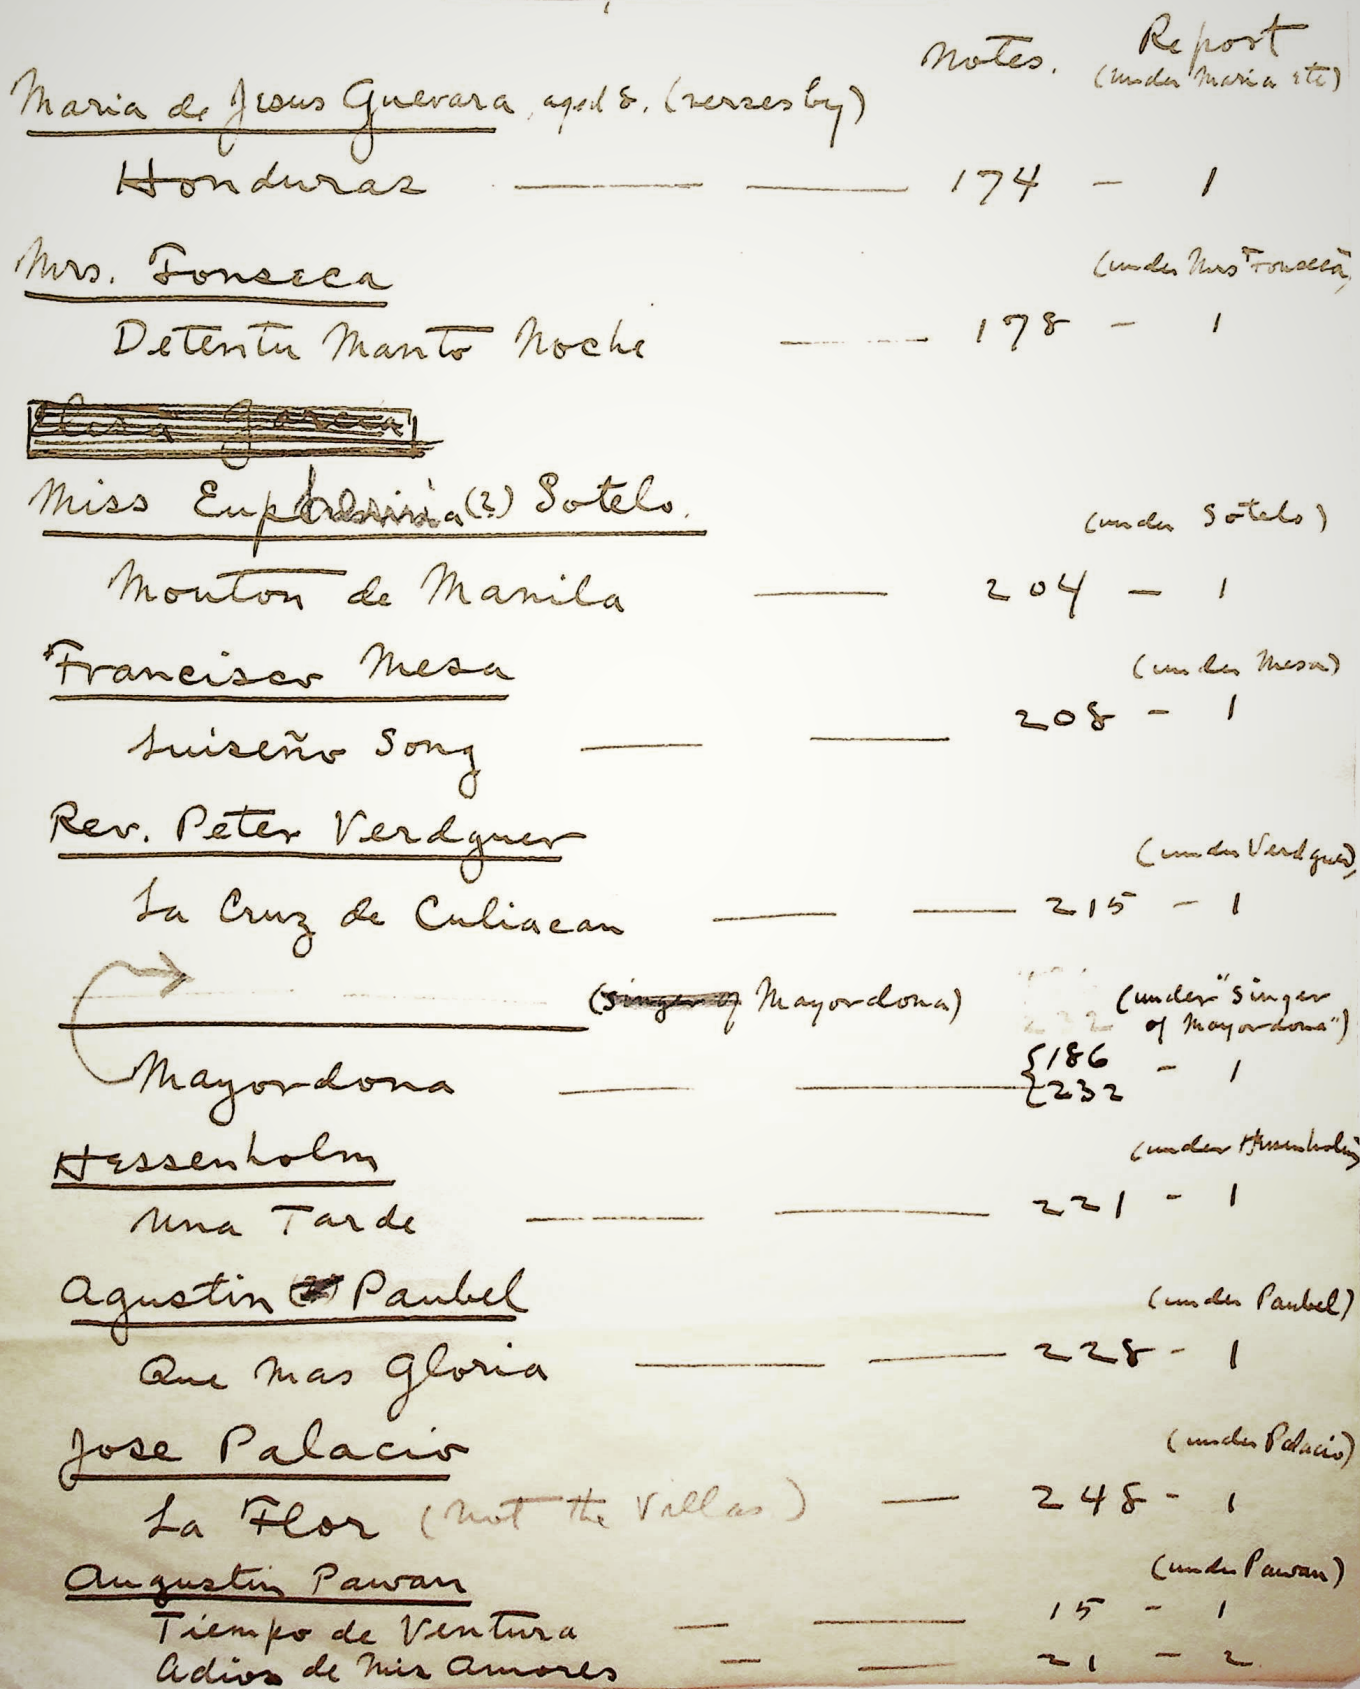 Notes. Report
(under Maria etc)
Maria de Jesus Guevara, aged 8. (verses by)
Honduras 174 - 1
Mrs. Fonseca (under Mrs Fonseca)
Detente Manto Noche 178 - 1
Garcia
Miss (?) Sotelo. (under Sotelo)
Monton de Manila 204 - 1
Francisco Mesa (under Mesa)
Luiseño Song 208 - 1
Rev. Peter Verdguer (under Verdguer)
La Cruz de Culiacan 215 - 1
(Singer of Mayordona) (under "Singer
of Mayordona")
Mayordona {186 - 1
{232
Hessenholm (under Hessenholm)
Una Tarde 221 - 1
Agustin (?) Paubel (under Paubel)
Que Mas Gloria 228 - 1
Jose Palacio (under Palacio)
La Flor (Not the Villas) 248 - 1
Augustin Pawan (under Pawan)
Tiempo de Ventura 15 - 1
Adios de Mis Amores 21 - 2